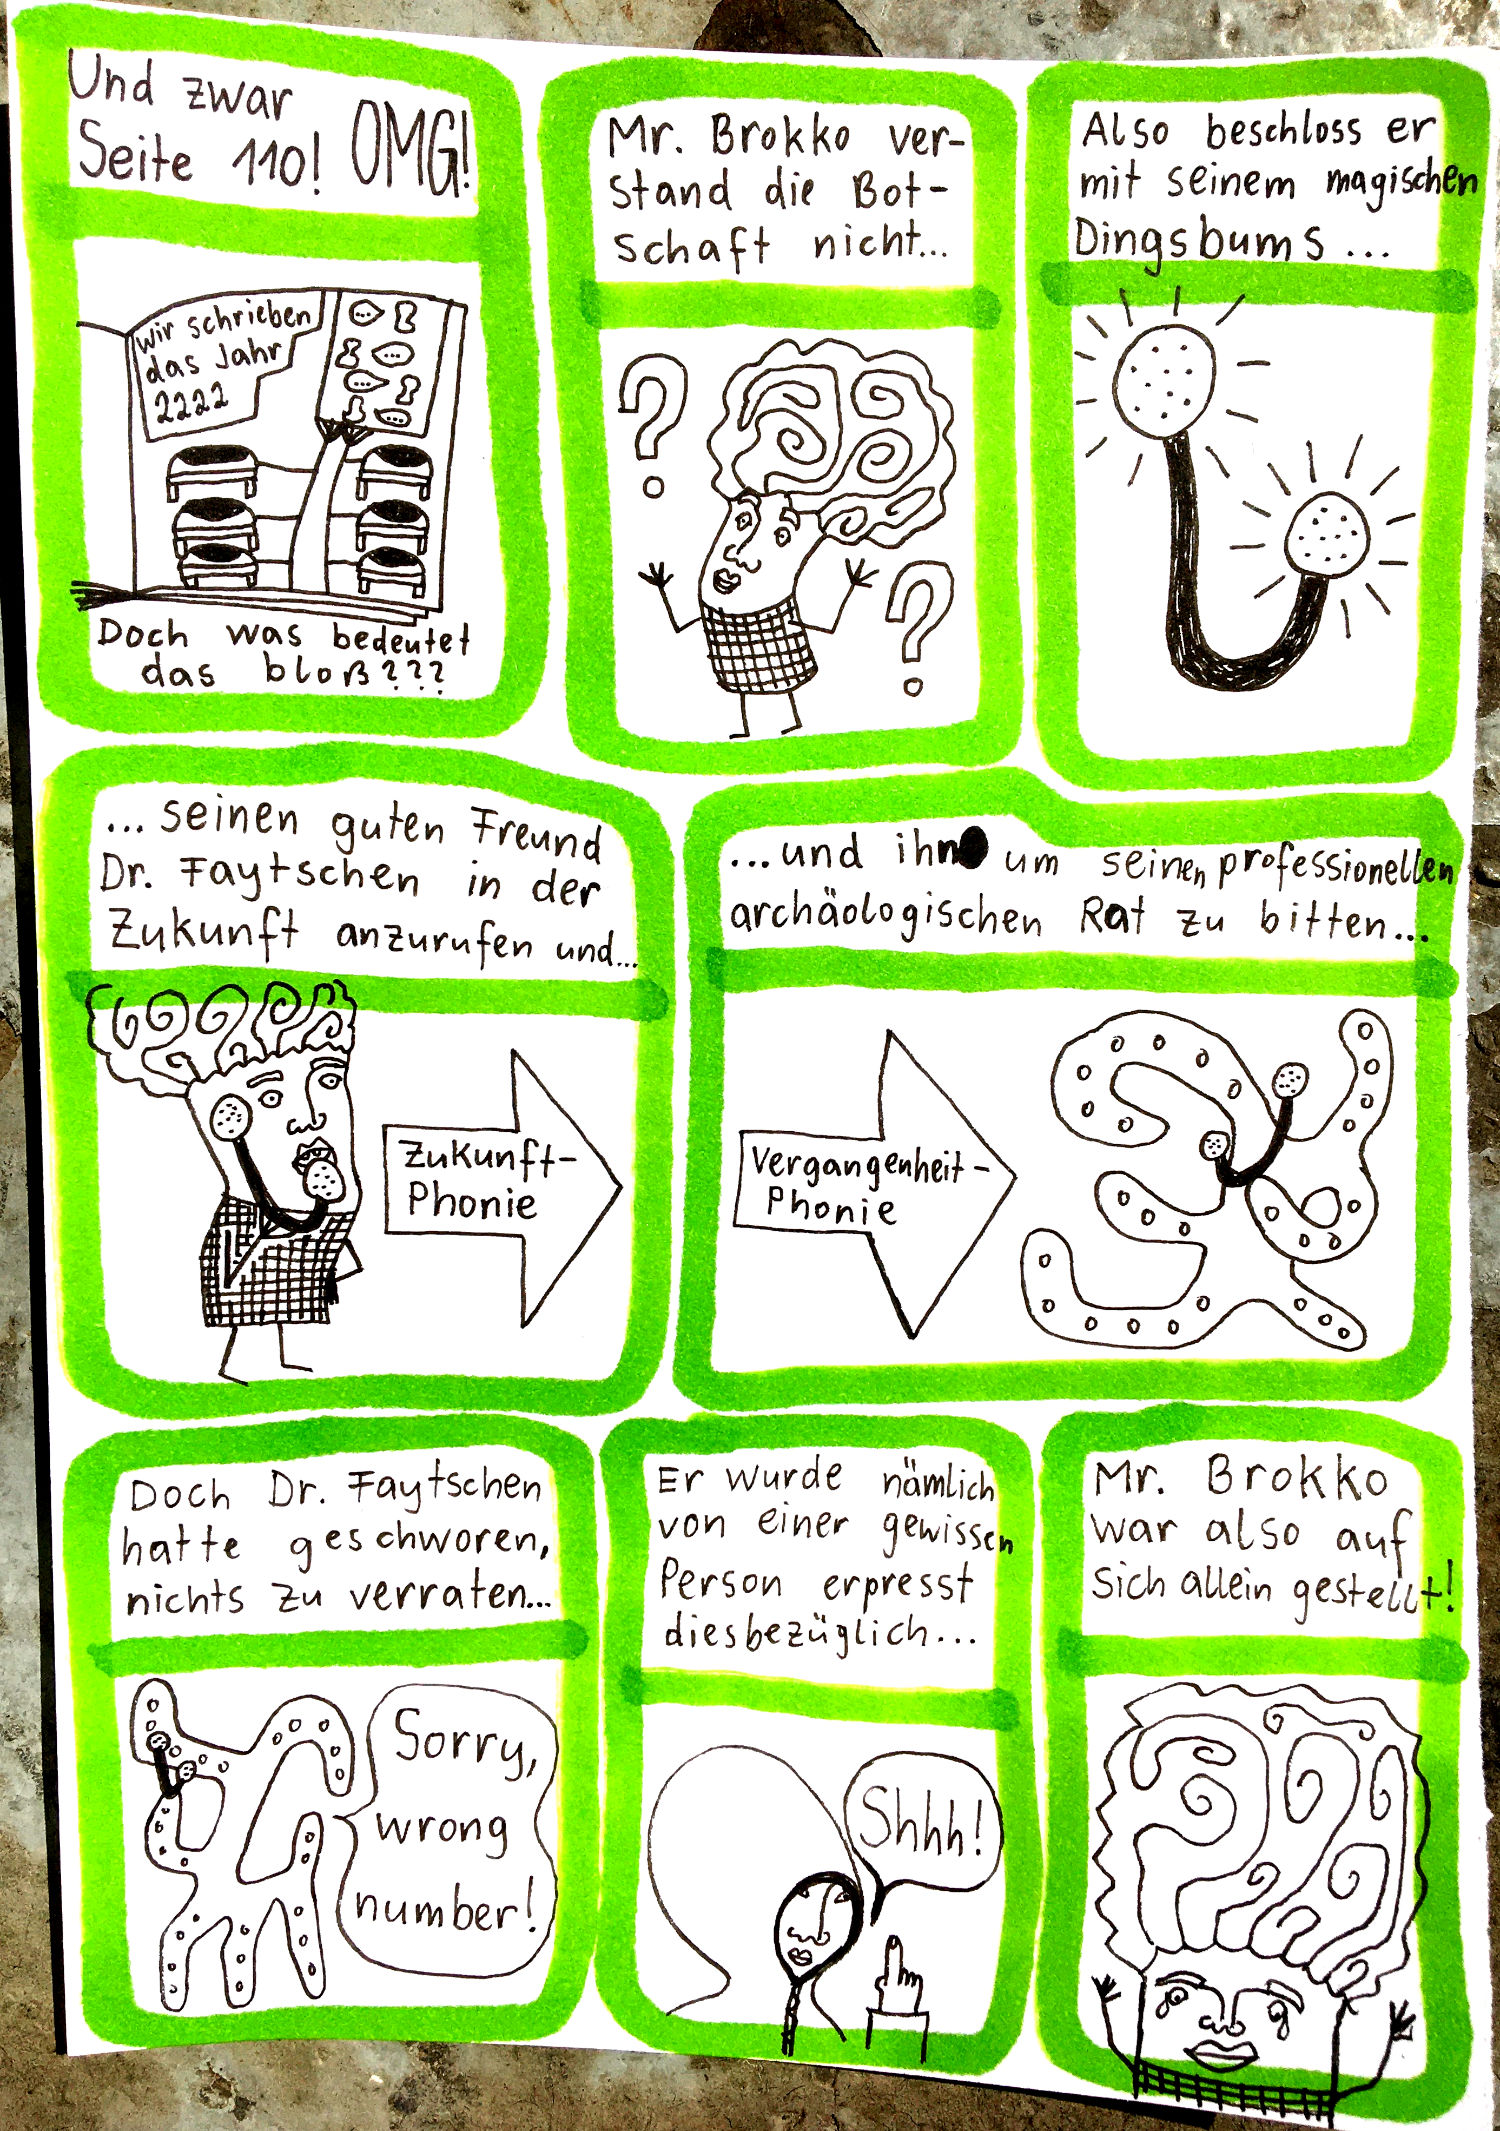 Und zwar
Seite 110! OMG!
wir schrieben
das Jahr
2222
Doch was bedeutet
das bloß???
Mr. Brokko ver-
stand die Bot-
schaft nicht...
?
?
Also beschloss er
mit seinem magischen
Dingsbums...
...seinen guten Freund
Dr. Faytschen in der
Zukunft anzurufen und...
Zukunft-
Phonie
...und ihn um seinen professionellen
archäologischen Rat zu bitten...
Vergangenheit-
Phonie
Doch Dr. Faytschen
hatte geschworen,
nichts zu verraten...
Sorry,
wrong
number!
Er wurde nämlich
von einer gewissen
Person erpresst
diesbezüglich...
Shhh!
Mr. Brokko
war also auf
sich allein gestellt!